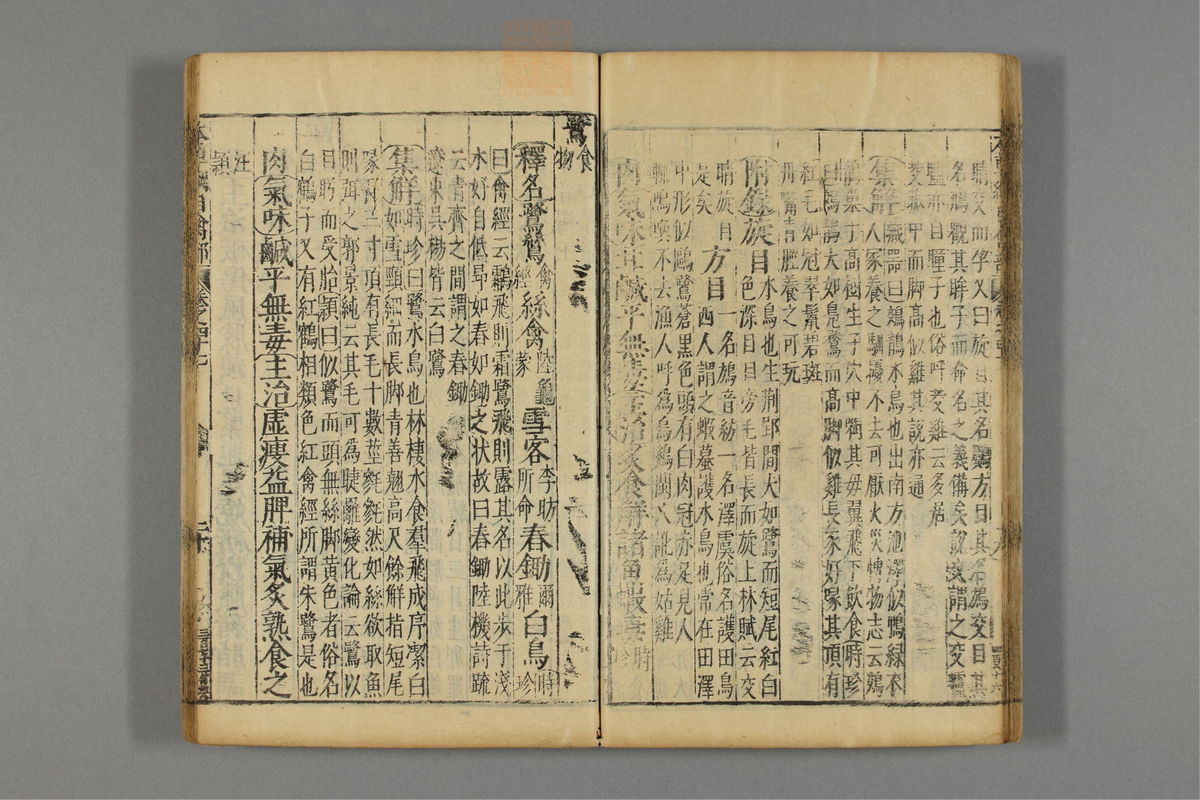 睛交而孕又曰旋目其名鸀方目其名鳩交目其
名鳽觀其眸子而命名之義備矣說文謂之交鸕
云多居
茭菰中而脚高似雞其說亦通
集解藏器曰鵁鶄水鳥也出南方池澤似鴨綠衣
人家養之馴擾不去可厭火災博物志云鵁
鶄巢于高樹生子穴中銜其母翼飛下飲食時珍
曰鵁鶄大如鳧鶩而高脚似雞長喙好啄其頂有
紅毛如冠翠鬣碧斑
丹觜青脛養之可玩
附錄旋目水鳥也生荆郢間大如鷺而短尾紅白
色深目目旁毛皆長而旋上林賦云交
睛旋目 方目 一名鴋音紡一名澤虞俗名護田鳥
是矣 西人謂之蝦蟇護水鳥也常在田澤
中形似鷗鷺蒼黑色頭有白肉冠赤足見人
輒鳴喚不去漁人呼為烏雞閩人訛為姑雞
肉氣味甘鹹平無毒主治炙食解諸魚蝦毒時
鷺食物
釋名鷺鷥禽經絲禽陸龜蒙雪客李昉所命舂鋤爾雅白鳥時珍
曰禽經云鸛飛則霜鷺飛則露其名以此步于淺
水好自低昂如舂如鋤之状故曰舂鋤陸機詩疏
云青齊之間謂之舂鋤
遼東吳楊皆云白鷺
集解時珍曰鷺水鳥也林棲水食羣飛成序潔白
如雪頸細而長脚青善翹高尺餘解指短尾
喙長三寸頂有長毛十數莖毿毿然如絲欲取魚
則弭之郭景純云其毛可為睫䍦變化論云鷺以
目盻而受胎頴曰似鷺而頭無絲脚黃色者俗名
白鶴子又有紅鶴相類色紅禽經所謂朱鷺是也
肉氣味鹹平無毒主治虛瘦益脾補氣炙熟食之
汪頴